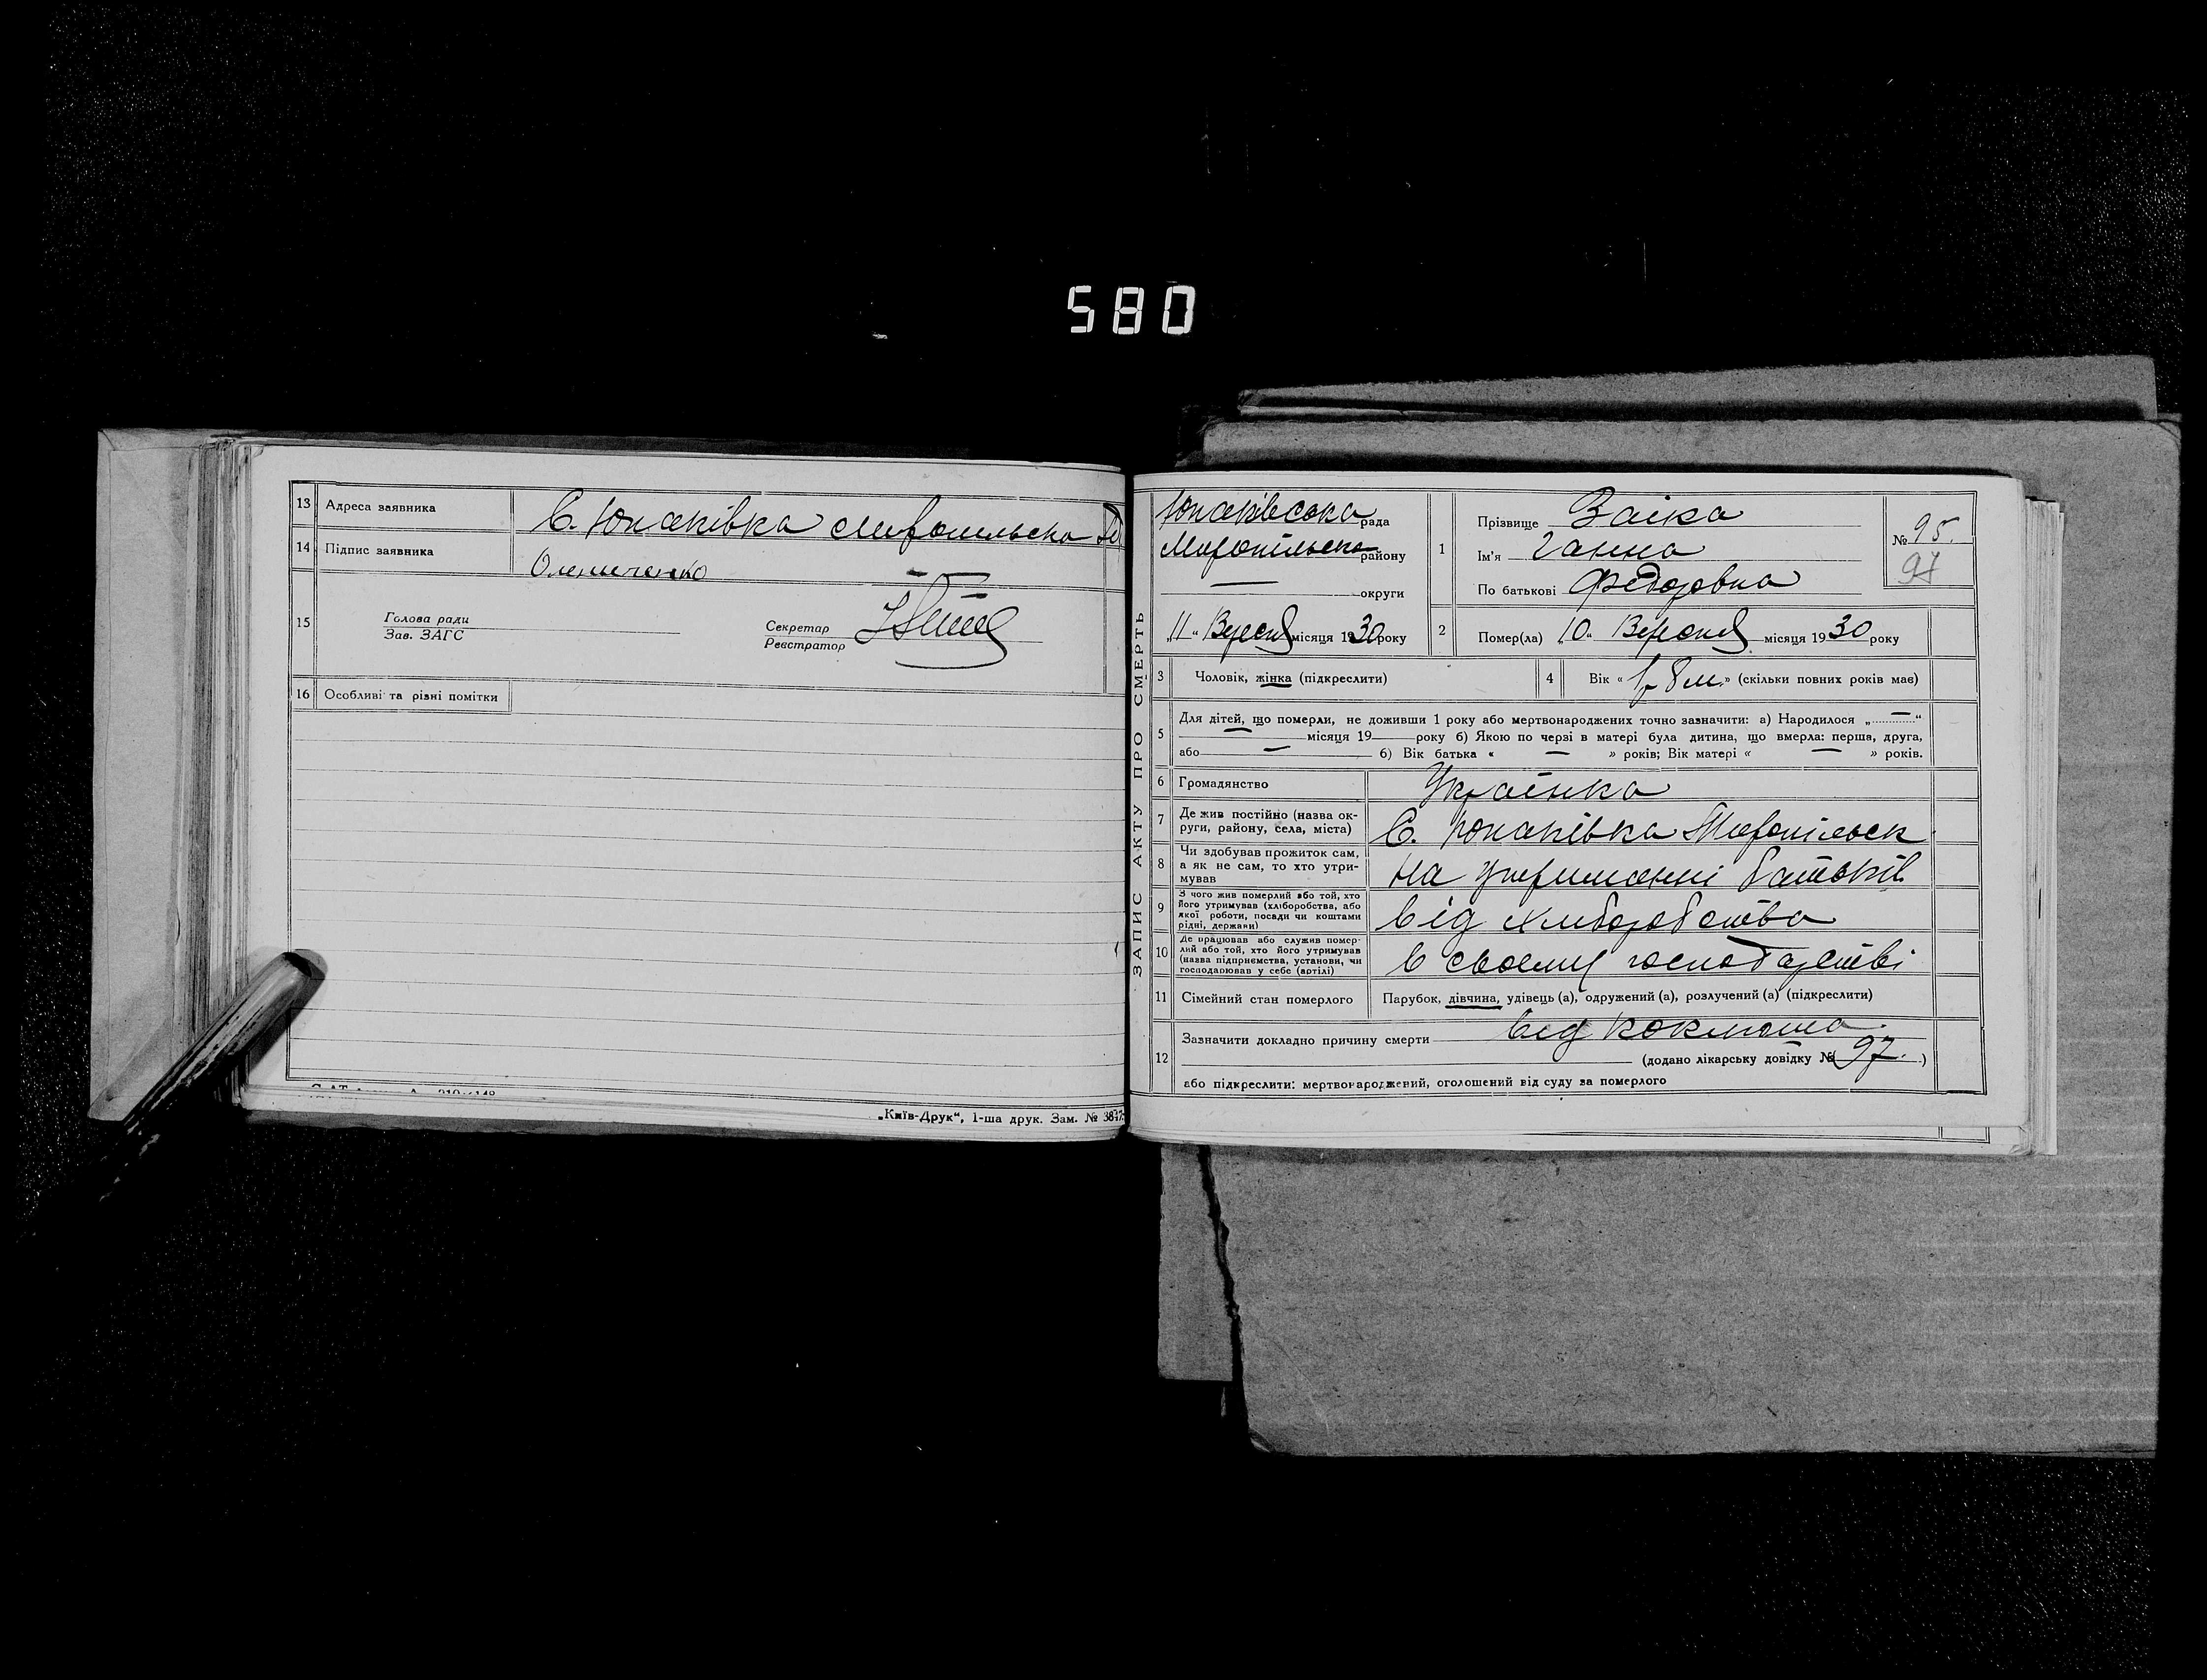 580
13 Адреса заявника С. Юнаківка Миропільсько
14 Підпис заявника
15 Голова ради
Зав. ЗАГС
Секретар
Реєстратор
16 Особливі та різні помітки
„Київ-Друк“, 1-ша друк. Зам. №
ЗАПИС АКТУ ПРО СМЕРТЬ
Юнаківська рада
Миропільсько району
— округи
„11“ Вересня місяця 1930 року
1 Прізвище Заїка
Ім'я Ганна
По батькові Федоровна
№ 95.
97
2 Помер(ла) 10 „ Вересня місяця 1930 року
3 Чоловік, жінка (підкреслити)
4 Вік « 1 р 8 м.» (скільки повних років має)
5 Для дітей, що померли, не доживши 1 року або мертвонароджених точно зазначити: а) Народилося „ — “
— місяця 19— року б) Якою по черзі в матері була дитина, що вмерла: перша, друга,
або — б) Вік батька « — » років; Вік матері « — » років.
6 Громадянство Українка
7 Де жив постійно (назва ок-
руги, району, села, міста) С. Юнаківка Миропільськ
8 Чи здобував прожиток сам,
а як не сам, то хто утри-
мував На утриманні батьків
9 З чого жив померлий або той, хто
його утримував (хліборобства, або
якої роботи, посади чи коштами
рідні, держави) від хліборобства
10 Де працював або служив помер-
лий або той, хто його утримував
(назва підприємства, установи, чи
господарював у себе (артілі) в своєму господарстві
11 Сімейний стан померлого Парубок, дівчина, удівець (а), одружений (а), розлучений (а) (підкреслити)
12 Зазначити докладно причину смерти від коклюша
(додано лікарську довідку № 97. )
або підкреслити: мертвонароджений, оголошений від суду за померлого